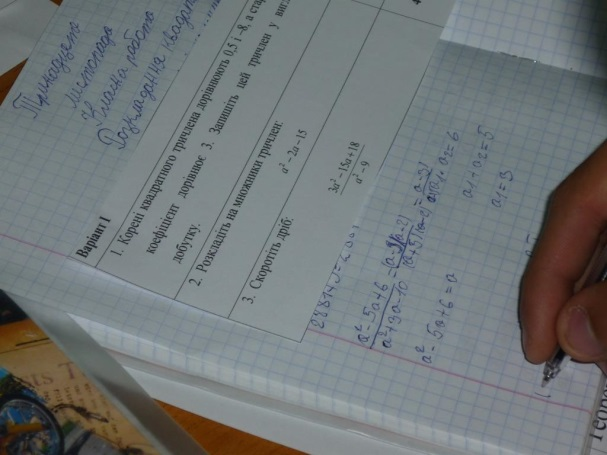 Тринадцяте
листопада
Класна робота
Розкладання квадрат
Варіант 1
1. Корені квадратного тричлена дорівнюють 0,5 і –8, а ста
коефіцієнт дорівнює 3. Запишіть цей тричлен у виг
добутку.
2. Розкладіть на множники тричлен:
a² – 2a – 15
3. Скоротіть дріб:
3a² – 15a + 18
a² – 9
4
a² - 5a + 6 = (a-3)(a-2) = a-3
a² + 3a - 10 (a+5)(a-2) a+5
a² - 5a + 6 = a
a₁ · a₂ = 6
a₁ + a₂ = 5
a₁ = 3